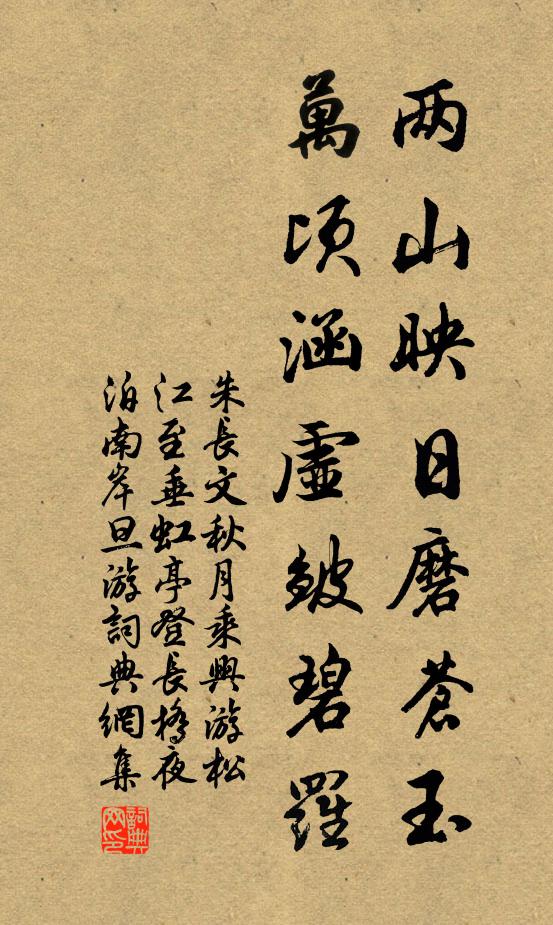 两山映日磨蒼玉
萬頃涵虛皴碧羅
朱長文秋月乘興游松
江至垂虹亭登長橋夜
泊南岸旦游詞典網集
詞典
网印